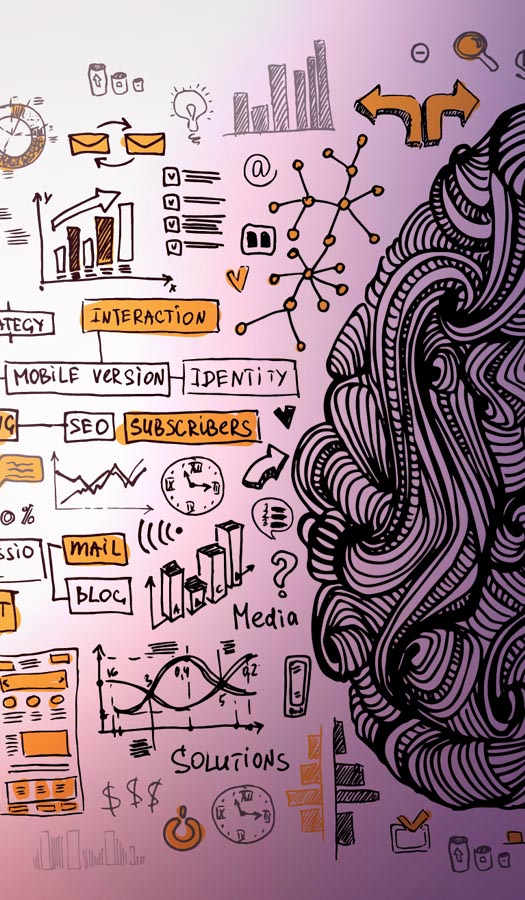 @
y
x
ATEGY
INTERACTION
MOBILE VERSION
IDENTITY
G
SEO
SUBSCRIBERS
0 %
SSIO
MAIL
BLOG
T
A B C D
?
Media
16 3 0,4 5 0,2
SOLUTIONS
$ $ $